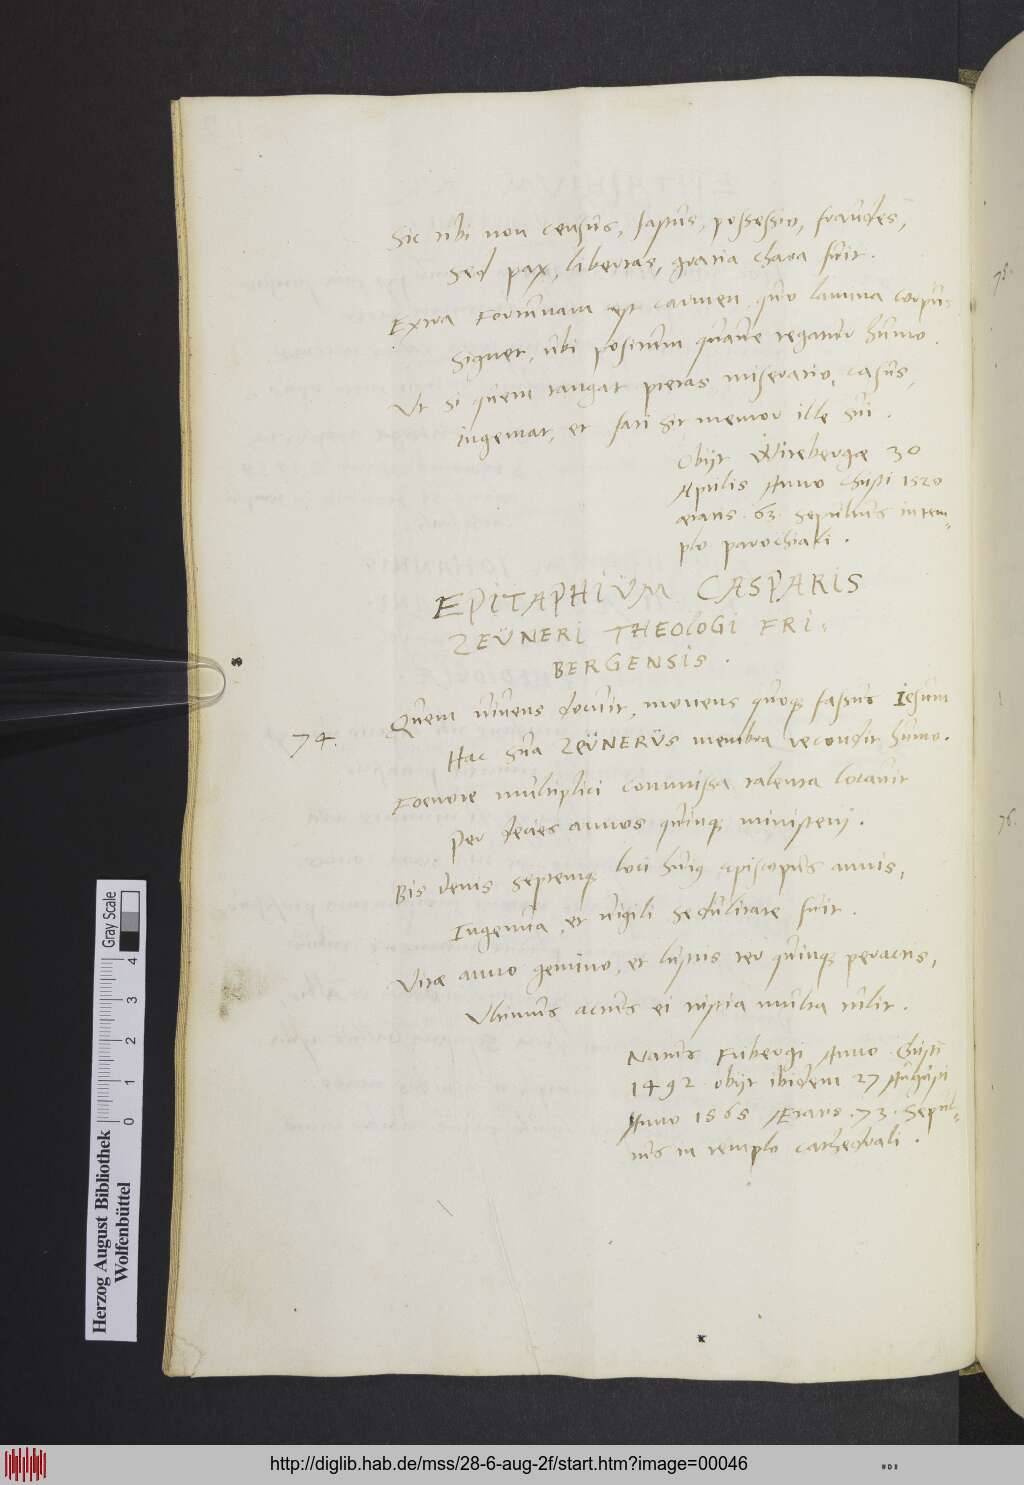 Sic tibi non census, fastus, possessio, fraudes,
Sed pax, libertas, gratia chara fuit.
Extra Fortunam est carmen quo lamina corpus
Signet, ubi positum quave tegatur humo.
Ut si quem tangat pietas miseratio, casus,
ingemat, et fati sit memor ille sui.
Obijt Witebergæ 30
Aprilis Anno Christi 1520
ætatis. 63. Sepultus in tem-
plo parochiali.
EPITAPHIUM CASPARIS
ZEÜNERI THEOLOGI FRI-
BERGENSIS.
74.
Quem vivens docuit, moriens quoq; fassus Iesum
Hac sua ZEÜNERUS membra recondit humo.
Foenore multiplici commissa talenta locavit
Per decies annos quinq; ministerij.
Bis denis septemq; loci huius episcopus annis,
Ingenua, et vigili sedulitate fuit.
Vitæ anno gemino, et lustris ter quinq; peractis,
Ultimus actus ei tristia multa tulit.
Natus Fribergi Anno Christi
1492 obijt ibidem 27 Augusti
Anno 1565 Ætatis. 73. Sepul-
tus in templo cathedrali.
75.
76.
Herzog August Bibliothek
Wolfenbüttel
0 1 2 3 4
Gray Scale
http://diglib.hab.de/mss/28-6-aug-2f/start.htm?image=00046